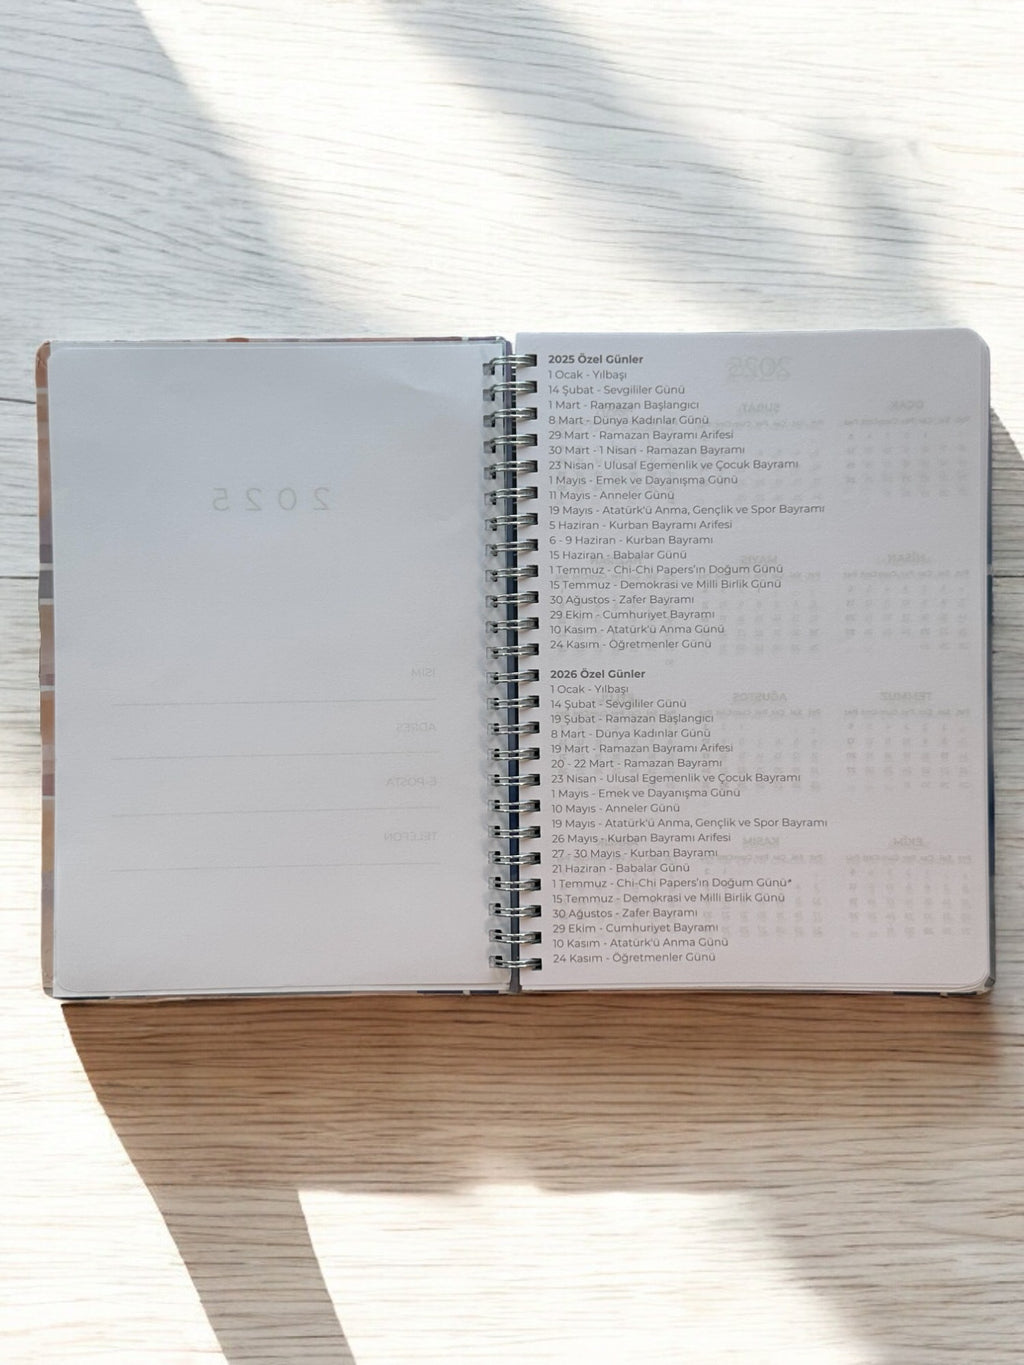 2025
İSİM
ADRES
E-POSTA
TELEFON
2025 Özel Günler
1 Ocak - Yılbaşı
14 Şubat - Sevgililer Günü
1 Mart - Ramazan Başlangıcı
8 Mart - Dünya Kadınlar Günü
29 Mart - Ramazan Bayramı Arifesi
30 Mart - 1 Nisan - Ramazan Bayramı
23 Nisan - Ulusal Egemenlik ve Çocuk Bayramı
1 Mayıs - Emek ve Dayanışma Günü
11 Mayıs - Anneler Günü
19 Mayıs - Atatürk'ü Anma, Gençlik ve Spor Bayramı
5 Haziran - Kurban Bayramı Arifesi
6 - 9 Haziran - Kurban Bayramı
15 Haziran - Babalar Günü
1 Temmuz - Chi-Chi Papers'ın Doğum Günü
15 Temmuz - Demokrasi ve Milli Birlik Günü
30 Ağustos - Zafer Bayramı
29 Ekim - Cumhuriyet Bayramı
10 Kasım - Atatürk'ü Anma Günü
24 Kasım - Öğretmenler Günü
2026 Özel Günler
1 Ocak - Yılbaşı
14 Şubat - Sevgililer Günü
19 Şubat - Ramazan Başlangıcı
8 Mart - Dünya Kadınlar Günü
19 Mart - Ramazan Bayramı Arifesi
20 - 22 Mart - Ramazan Bayramı
23 Nisan - Ulusal Egemenlik ve Çocuk Bayramı
1 Mayıs - Emek ve Dayanışma Günü
10 Mayıs - Anneler Günü
19 Mayıs - Atatürk'ü Anma, Gençlik ve Spor Bayramı
26 Mayıs - Kurban Bayramı Arifesi
27 - 30 Mayıs - Kurban Bayramı
21 Haziran - Babalar Günü
1 Temmuz - Chi-Chi Papers'ın Doğum Günü*
15 Temmuz - Demokrasi ve Milli Birlik Günü
30 Ağustos - Zafer Bayramı
29 Ekim - Cumhuriyet Bayramı
10 Kasım - Atatürk'ü Anma Günü
24 Kasım - Öğretmenler Günü